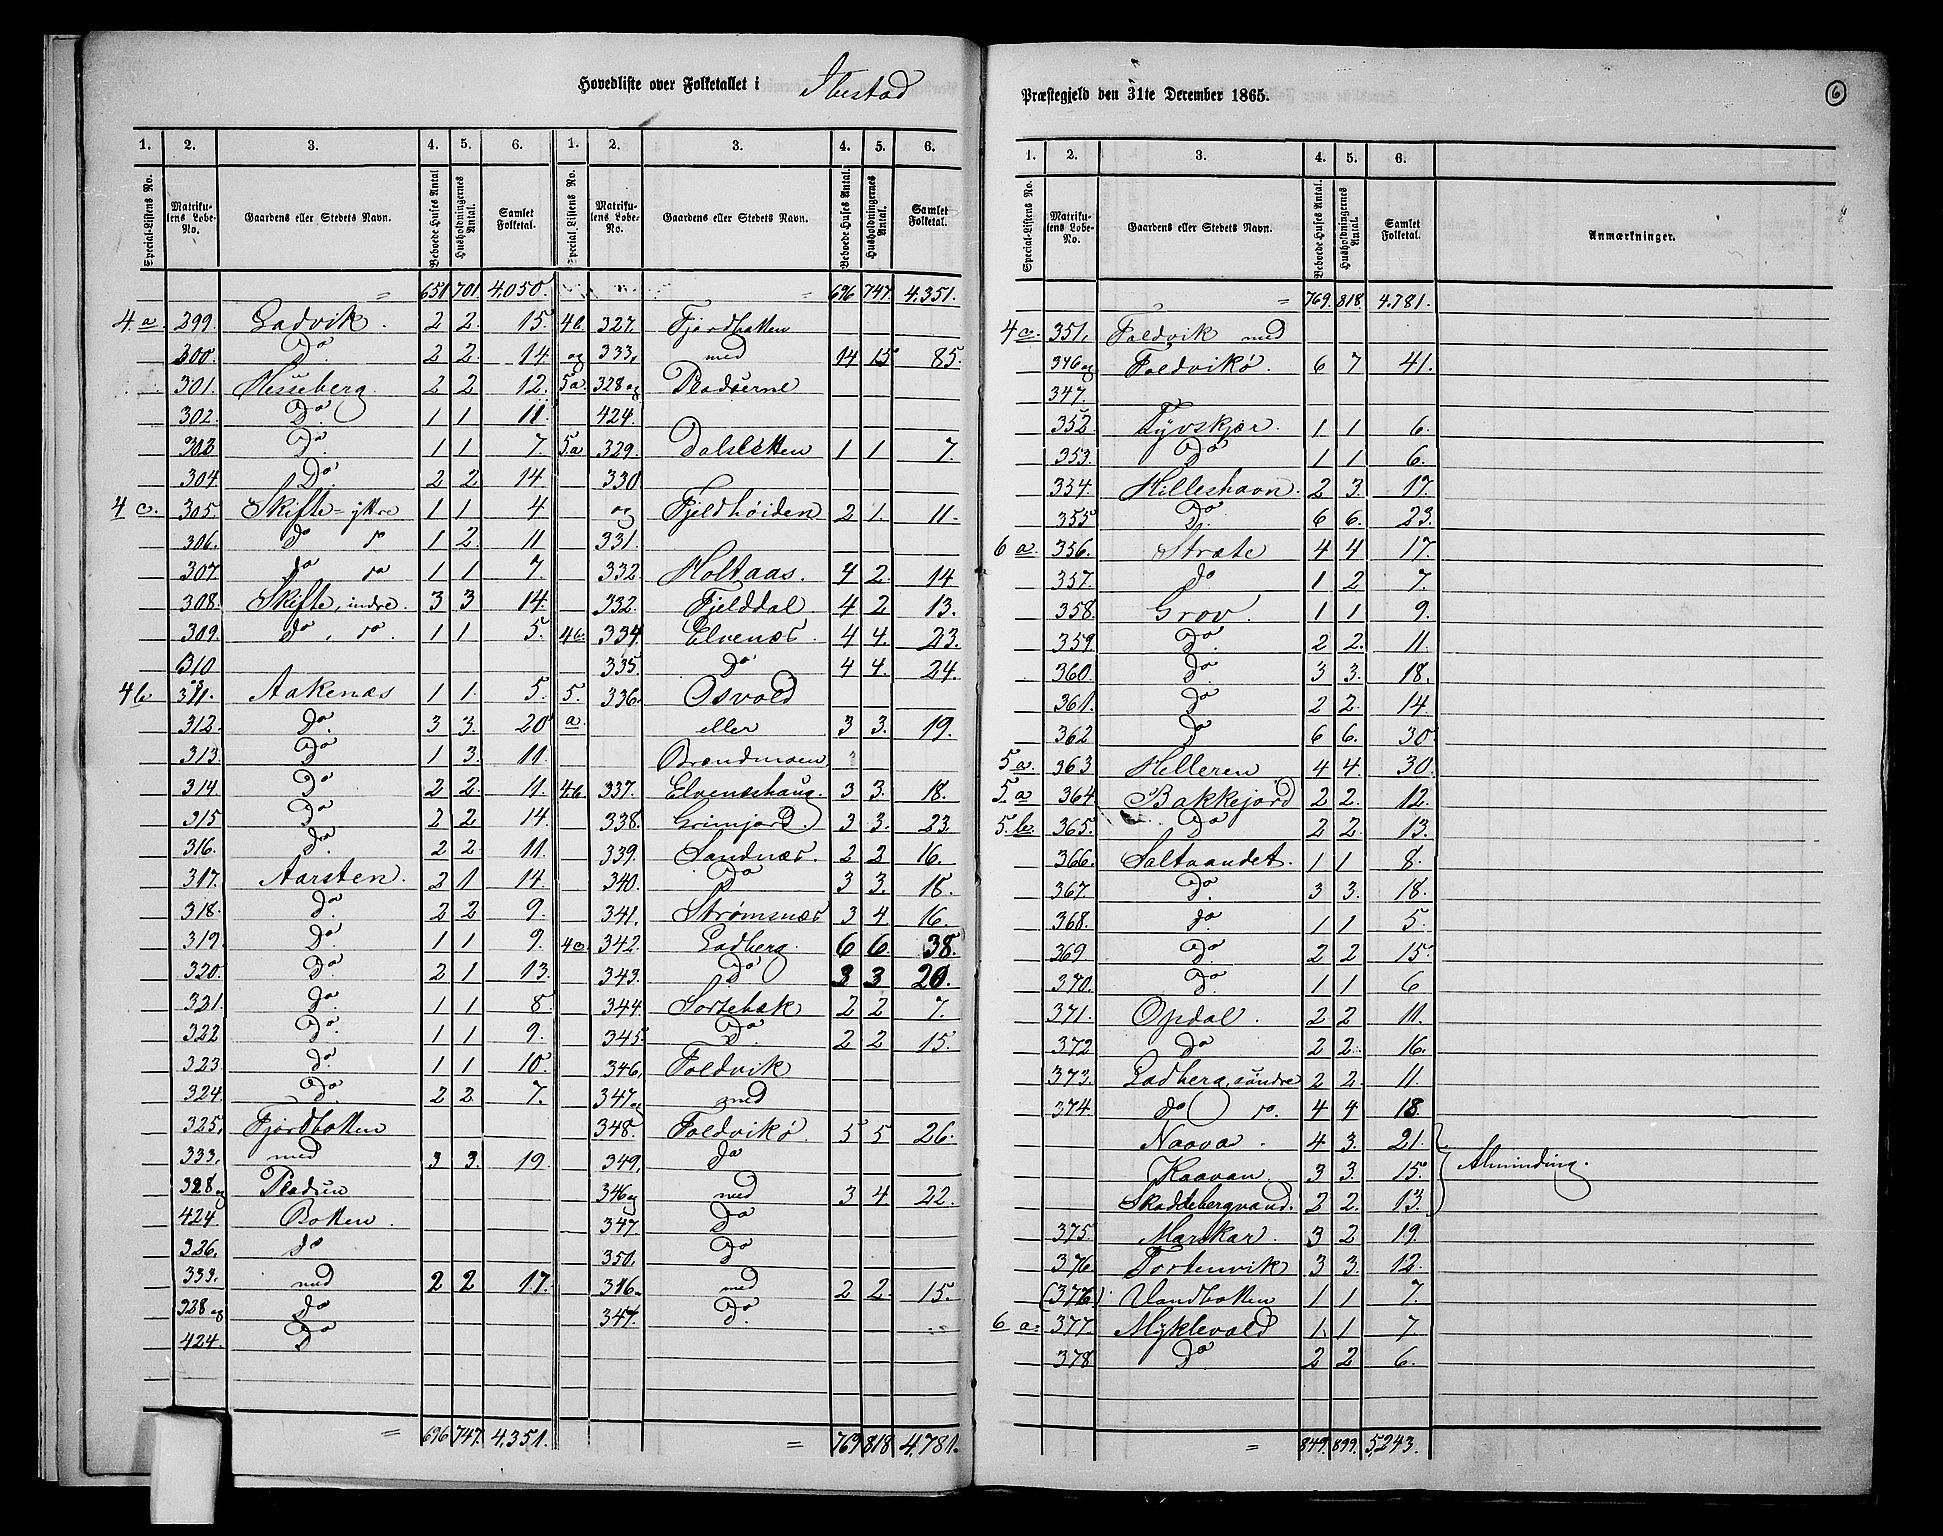 Hovedliste over Folketallet i Ibestad
1. 2. 3. 4. 5. 6. 1. 2. 3. 4. 5. 6.
Special-Listens No. Matrikulens Løbe-No. Gaardens eller Stedets Navn. Beboede Huses Antal Husholdningernes Antal. Samlet Folketal. Special-Listens No. Matrikulens Løbe-No. Gaardens eller Stedets Navn. Beboede Huses Antal. Husholdningernes Antal. Samlet Folketal.
= 651 701 4,050.
4 a. 299. Ladvik. 2 2. 15.
300. Do. 2 2. 14.
301. Hesseberg. 2 2 12.
302. Do. 1 1 11.
303 Do. 1 1 7.
304. Do. 2 2 14.
4 c. 305. Skifte = ytre 1 1 4
306. do do 1 2. 11
307. do do 1 1 7.
308. Skifte, indre. 3 3 14.
309. do, do. 1 1 5.
310
4 b 311. Aakenæs 1 1. 5.
312. Do. 3 3. 20
313. Do 1 3. 11.
314 Do 2 2. 11.
315 Do 2 2 14
316. do. 2 2 11.
317. Aarsten. 2 1 14.
318. do. 2 2 9.
319. Do. 1 1 9.
320. Do 2 1 13.
321. do. 1 1 8.
322 Do. 1 1 9.
323 do. 1 1 10.
324. Do. 2 2 7.
325, Fjordbotten
333, med 3 3. 19.
328 og Pladsen
424. Botten.
326. do
333. med 2 2 17.
328 og Do
424. Do
= 696 747. 4,351.
= 696 747. 4,351.
4b. 327. Fjordbotten
og 333, med 14 15 85.
5a. 328 og Pladserne
424.
5a 329. Dalsletten 1 1 7.
330
og Fjeldhøiden 2 1. 11.
331.
332 Holtaas. 4 2. 14
332. Fjelddal. 4 2 13.
4b. 334 Elvenæs. 4 4. 23.
335. Do 4 4. 24.
5. 336. Osvold
a. eller 3 3. 19.
Brandmoen
4b 337. Elveneshaug. 3 3. 18.
338. Grimjord. 3 3. 23
339. Sandnæs. 2 2 16.
340. Do 3 3. 18.
341. Strømsnæs 3 4 16
4c. 342. Ladberg. 6 6. 38.
343. Do 3 3 20.
344. Sortebæk 2 2 7.
345. Do. 2 2 15.
346, Foldvik
347 og med
348. Foldvikø. 5 5 26.
349, do
346 og med 3 4 22.
347. Do
350, Do
346. med 2 2. 15.
347. Do.
= 769 818 4,781.
Præstegjeld den 31te December 1865.
6
1. 2. 3. 4. 5. 6.
Special-Listens No. Matrikulens Løbe-No. Gaardens eller Stedets Navn. Beboede Huses Antal. Husholdningernes Antal. Samlet Folketal. Anmærkninger.
= 769. 818. 4,781.
4 c. 351, Foldvik med
346 og Foldvikø 6 7 41.
347.
352. Tyvskjær. 1 1 6.
353. Do 1 1 6.
354. Hilleshavn. 2 3. 17.
355 Do. 6 6. 23.
6 a. 356. Stræte 4 4 17.
357. do 1 2 7.
358. Grov. 1 1 9.
359. Do. 2 2. 11.
360. do. 3 3. 18.
361. Do 2 2. 14.
362 Do 6 6. 30.
5 a. 363. Helleren 4 4. 30.
5. a 364. Bakkejord 2 2. 12.
5. b. 365. Do 2 2. 13.
366. Saltvandet. 1 1 8.
367. Do. 3 3. 18.
368. do. 1 1 5.
369 Do 2 2 15.
370. Do. 1 1 6
371. Opdal. 2 2 11.
372 do 2 2. 16.
373. Ladberg, søndre 2 2. 11.
374. do do. 4 4 18.
Naava. 4 3. 21.
Kaavan. 3 3. 15. Alminding.
Skoddebergvand. 2 2. 13.
375. Marskar. 3 2 19.
376 Tortenvik 3 3. 12.
(376). Vandbotten 1 1 7.
6 a. 377. Myklevold 1. 1 7.
378 Do. 2 2 6.
= 849. 899. 5,243.